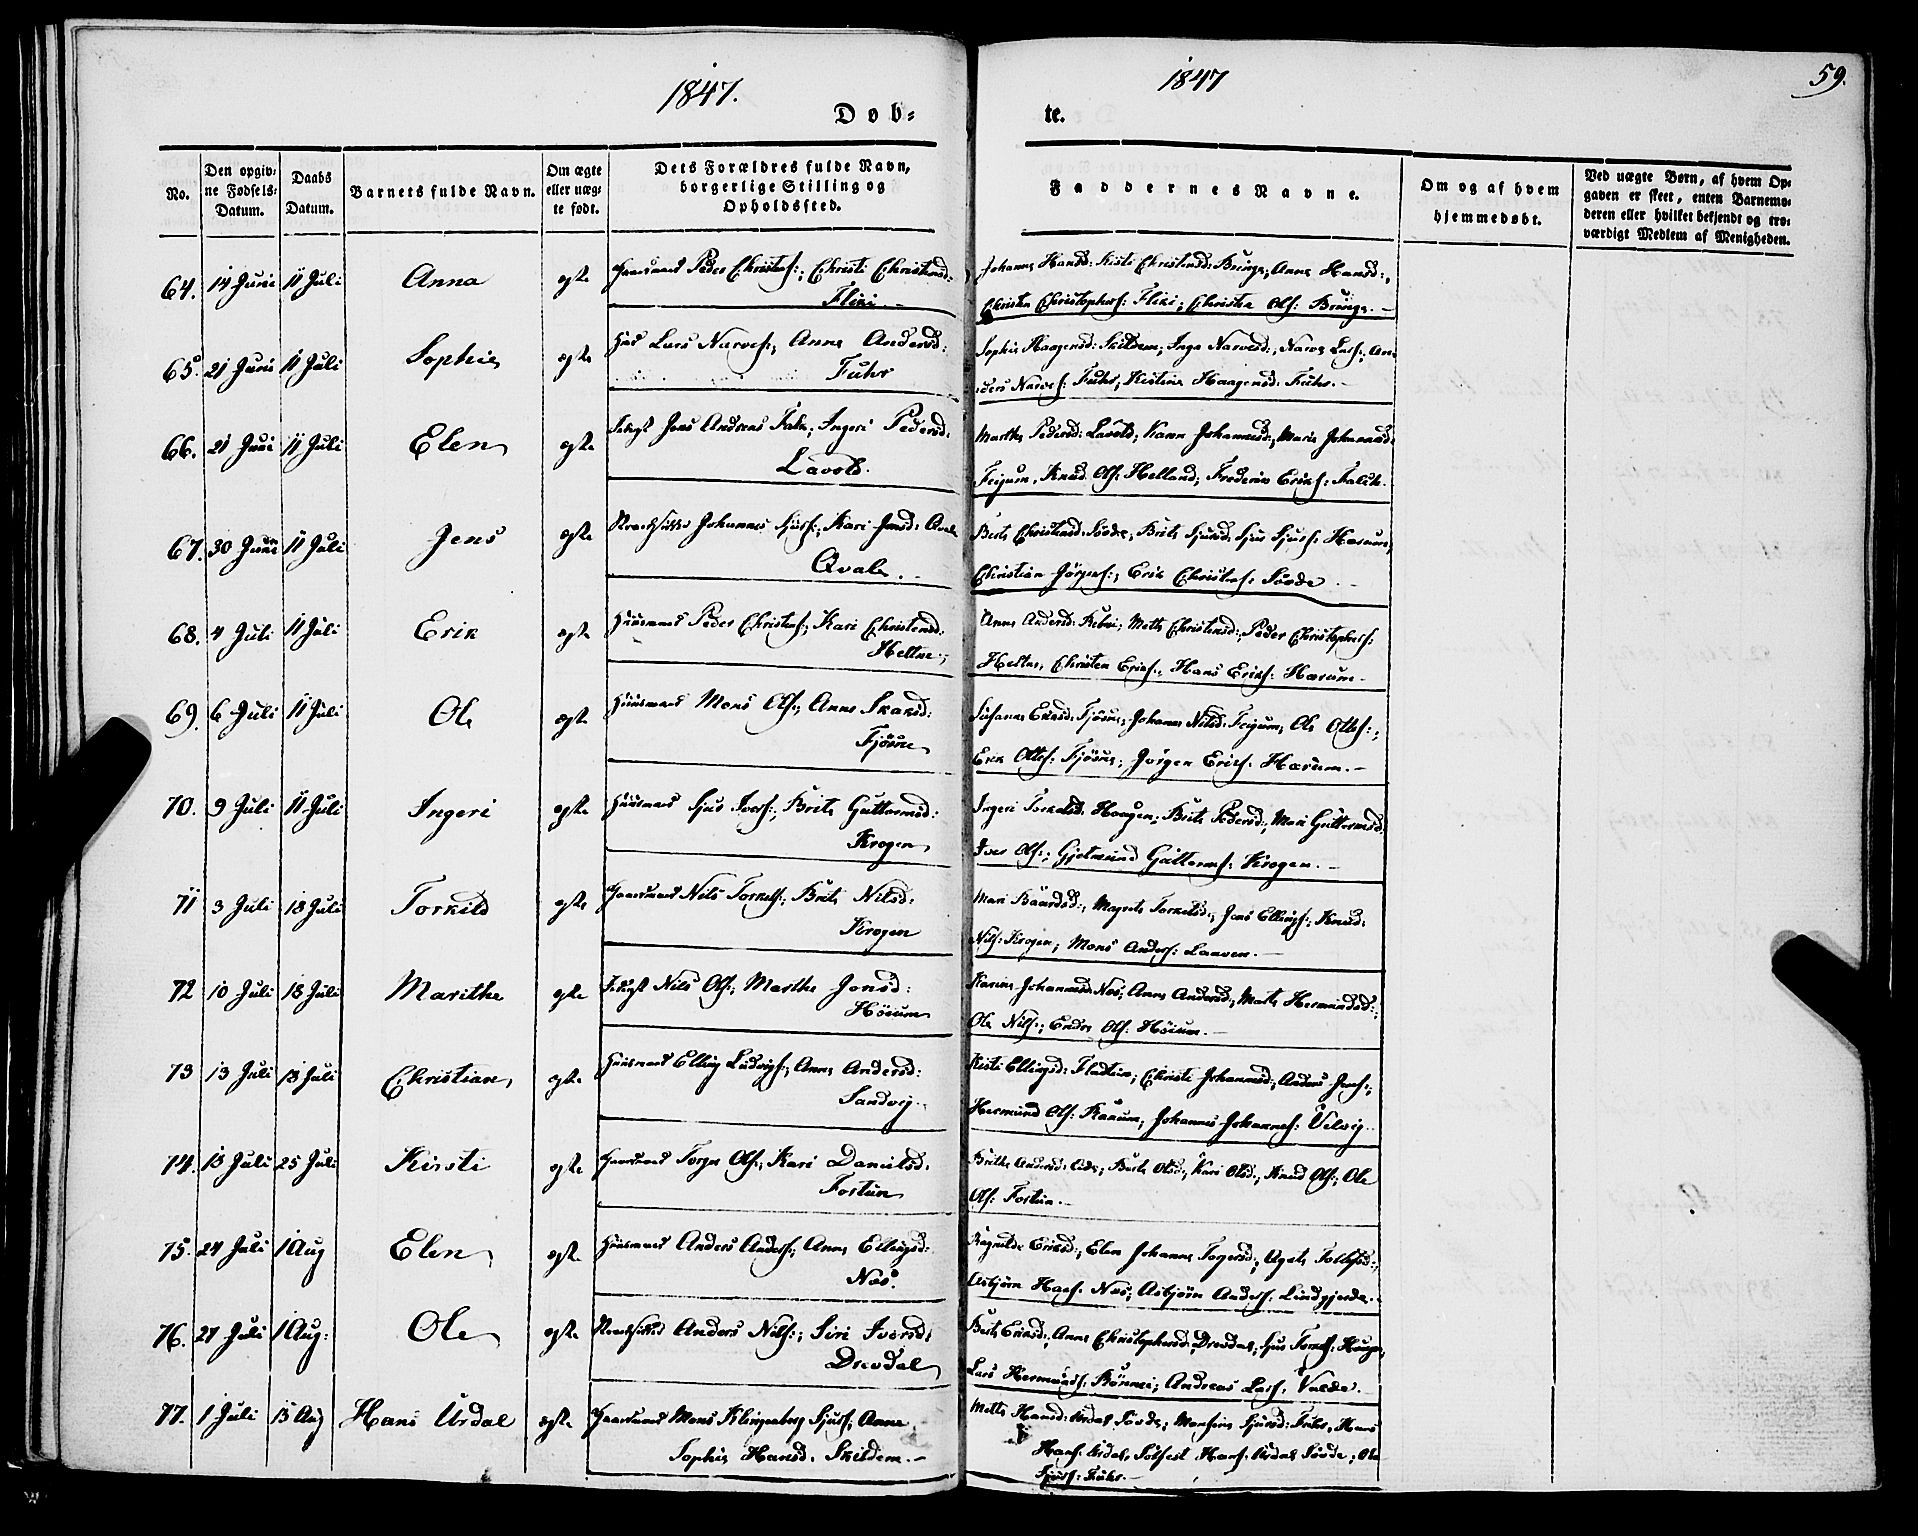 1847.
1847
59.
Døb-
te.
No.
Den opgivne Fødsels-Datum.
Daabs Datum.
Barnets fulde Navn.
Om ægte eller uægte født.
Dets Forældres fulde Navn, borgerlige Stilling og Opholdssted.
Faddernes Navne.
Om og af hvem hjemmedøbt.
Ved uægte Børn, af hvem Opgaven er skeet, enten Barnemoderen eller hvilket bekjendt og troværdigt Medlem af Menigheden.
64. 14 Juni 11 Juli Anna ægte Peder Christens:, Christi Christensd:
Johanne Hansd: Kisti Christensd: Bringe, Anne Hansd:,
Christen Christophers: Flixi; Christen Ols: Bringe.
65. 21 Juni 11 Juli Sophie ægte Lars Narves:, Anne Andersd:
Fuhr
Sophie Haagensd: Skildem, Inga Narvesd:, Narve Lars:, An-
ders Narves: Fuhr, Kistine Haagensd: Fuhr.
66. 21 Juni 11 Juli Elen ægte Jens Andreas Falk, Ingeri Pedersd:
Marthe Pedersd: Johannesd:, Marie Johannesd:
Feigum, Knud Ols: Helland, Frederik Eriks: Falck.
67. 30 Juni 11 Juli Jens ægte Johannes Sjurs:, Kari Jensd:
Qvale.
Brite Sjursd: Sjur Sjurs: Harum,
Christian Jörgens:, Erik Christens: Sövde
68. 4 Juli 11 Juli Erik ægte Huusmand Peder Christens:, Kari Christensd:
Heltne,
Anne Andersd: Mette Christensd:, Peder Christophers:
Heltne, Christen Eriks:, Hans Eriks: Harum.
69. 6 Juli 11 Juli Ole ægte Huusmand Mons Ols:, Anne
Fjösne
Susanne Eriksd: Fjösne, Johanne Nilsd: Feigum, Ole Ottes:,
Erik Ottes: Fjösne, Jörgen Eriks: Harum.
70. 9 Juli 11 Juli Ingeri ægte Huusmand Sjur Ivers:, Brite Guttormsd:
Krogen
Ingeri Torkelsd: Haugen, Brite Pedersd:, Mari Guttormsd:
Iver Ols:, Gjelmund Guttorms: Krogen.
71 3 Juli 18 Juli Torkild ægte Gaardmand Nils Torkels:, Brite Nilsd:
Krogen
Mari Baardsd:, Magrete Torkelsd:, Jens Ellings:, Knud
Nils: Krogen, Mons Anders: Laaven.
72 10 Juli 18 Juli Marithe ægte Nils Ols:, Marthe Jonsd:
Höium
Karine Johannesd: Nos, Anne Andersd:, Marte Hermundsd:,
Ole Nils:, Endre Ols: Höium.
73 13 Juli 18 Juli Christian ægte Huusmand Elling Ludvigs:, Anne Andersd:
Sandvig
Kisti Ellingsd: Christi Johannesd:, Anders Jens:,
Hermund Ols: Raaum, Johannes Johannes: Vilvig.
74. 13 Juli 25 Juli Kirsti ægte Gaardmand Torger Ols:, Kari Danielsd:
Fortun
Brithe Andersd: Eide, Brite Olsd:, Kari Olsd:, Knud Ols:, Ole
Ols: Fortun.
75. 24 Juli 1 Aug Elen ægte Huusmand Anders Anders:, Anne Ellingsd:
Nos.
Ragnilde Eriksd:, Elen Johanne Torgersd:, Agate Tollefsd:,
Asbjörn Hans: Nos, Asbjörn Anders: Lindgjerde.
76. 27 Juli 1 Aug: Ole ægte Anders Nils:, Siri Iversd:
Drevdal
Brite Eriksd:, Anne Christophersd: Drevdal, Sjur Torkels: Hauge,
Lars Hermunds: Rönnei, Andreas Lars: Valde.
77. 1 Juli 15 Aug Hans Urdal ægte Gaardmand Mons Klingenberg Sjurs:, Anne
Sophie Hansd: Skildem.
Mette Hansd: Urdal Sövde, Monsine Sjursd: Fuhr, Hans
Hans: Urdal, Solfest Hans: Urdal Sövde, Ole
Sjurs: Fuhr.